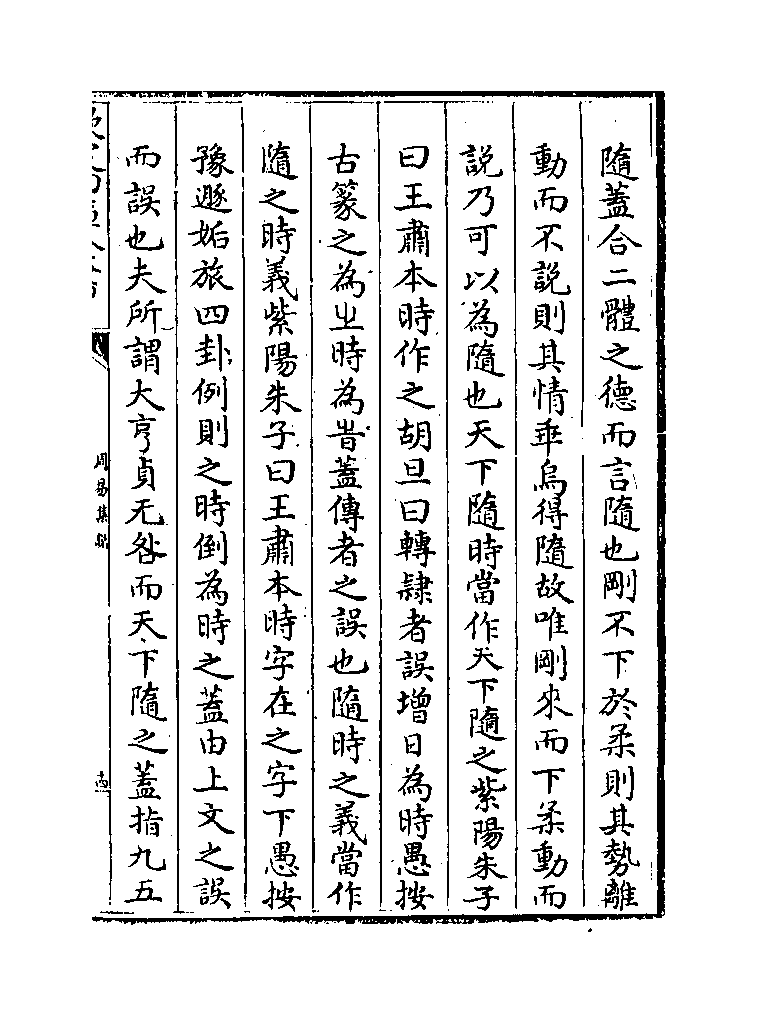 隨蓋合二體之德而言隨也剛不下於柔則其勢離
動而不說則其情乖烏得隨故唯剛來而下柔動而
說乃可以為隨也天下隨時當作天下隨之紫陽朱子
曰王肅本時作之胡旦曰轉隸者誤增日為時愚按
古篆之為㞢時為旹蓋傳者之誤也隨時之義當作
隨之時義紫陽朱子曰王肅本時字在之字下愚按
豫遯姤旅四卦例則之時倒為時之蓋由上文之誤
而誤也夫所謂大亨貞无咎而天下隨之蓋指九五
周易集說